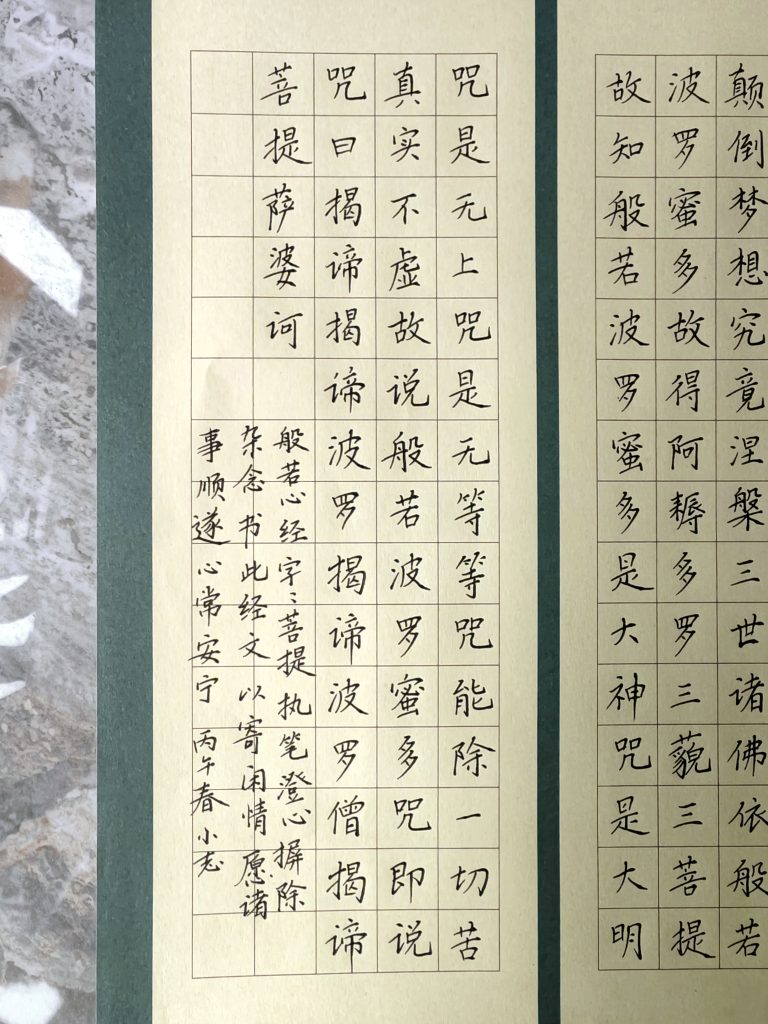 颠倒梦想究竟涅槃三世诸佛依般若
波罗蜜多故得阿耨多罗三藐三菩提
故知般若波罗蜜多是大神咒是大明
咒是无上咒是无等等咒能除一切苦
真实不虚故说般若波罗蜜多咒即说
咒曰揭谛揭谛波罗揭谛波罗僧揭谛
菩提萨婆诃
般若心经字字菩提执笔澄心摒除
杂念书此经文以寄闲情愿诸
事顺遂心常安宁 丙午春小志